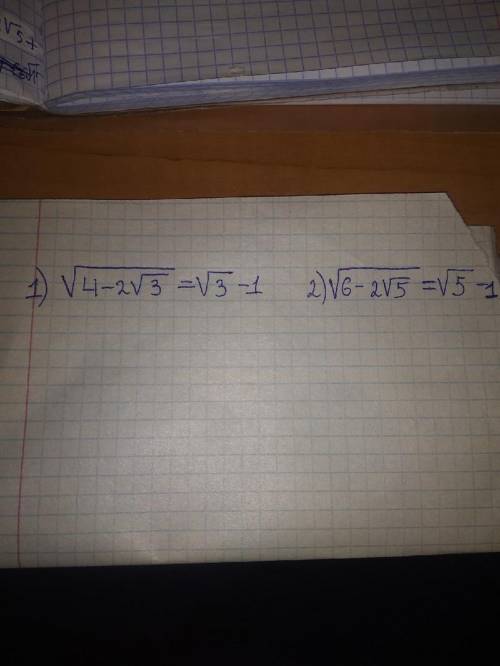 √5+
1) √(4-2√3) = √3 - 1 2) √(6-2√5) = √5 - 1